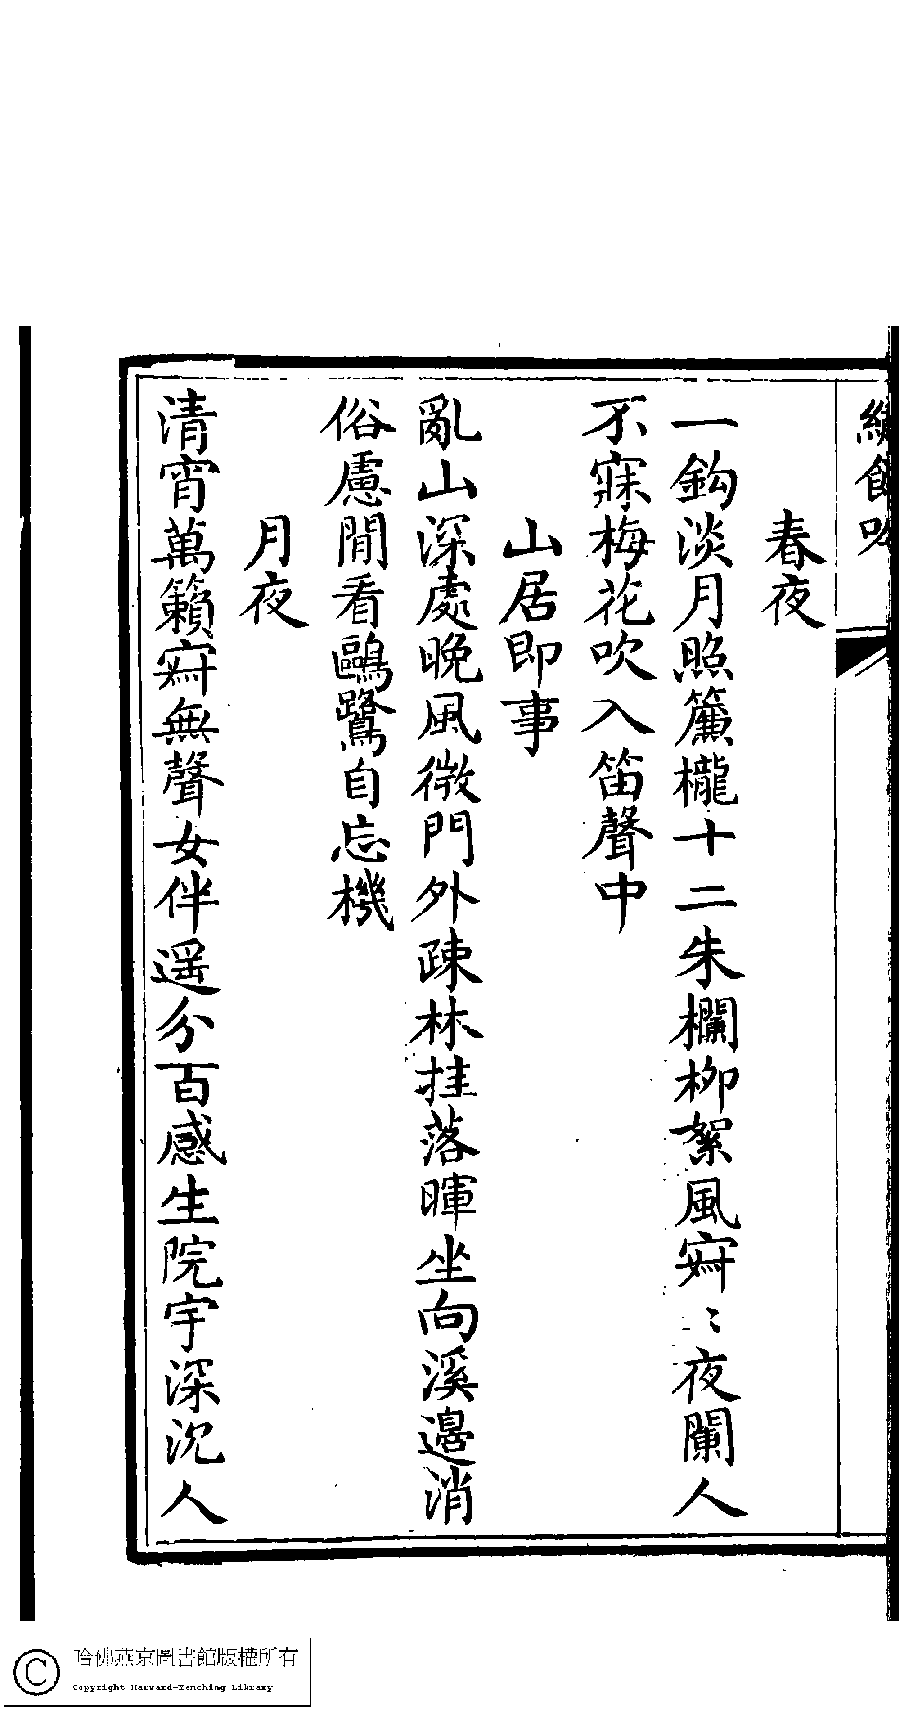 繡餘吟
春夜
一鈎淡月照簾櫳十二朱欄柳絮風寂〻夜闌人
不寐梅花吹入笛聲中
山居即事
亂山深處晚風微門外疎林挂落暉坐向溪邊消
俗慮閒看鷗鷺自忘機
月夜
清宵萬籟寂無聲女伴遥分百感生院宇深沉人
哈佛燕京圖書館版權所有
Copyright Harvard-Yenching Library